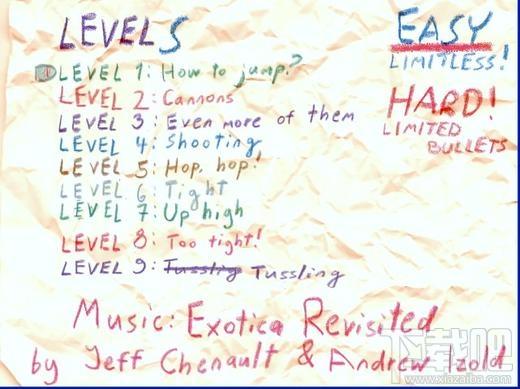 LEVELS
LEVEL 1: How to jump?
LEVEL 2: Cannons
LEVEL 3: Even more of them
LEVEL 4: Shooting
LEVEL 5: Hop, hop!
LEVEL 6: Tight
LEVEL 7: Up high
LEVEL 8: Too tight!
LEVEL 9: Tussling Tussling
EASY
LIMITLESS!
HARD!
LIMITED
BULLETS
Music: Exotica Revisited
by Jeff Chenault & Andrew Izold
下载吧
www.xiazaiba.com